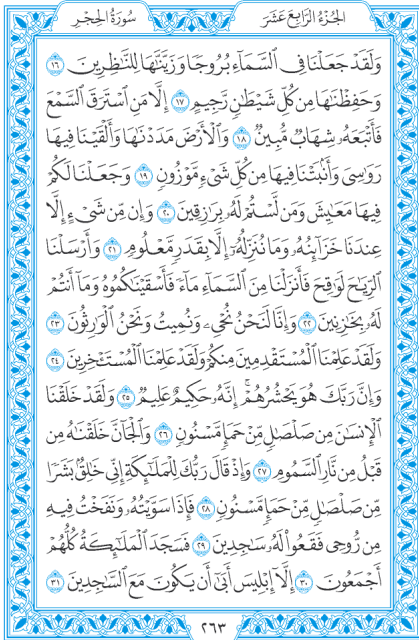 الجُزْءُ الرَّابِعَ عَشَرَ
سُورَةُ الحِجْرِ
وَلَقَدْ جَعَلْنَا فِي ٱلسَّمَآءِ بُرُوجًا وَزَيَّنَّٰهَا لِلنَّٰظِرِينَ ١٦
وَحَفِظْنَٰهَا مِن كُلِّ شَيْطَٰنٖ رَّجِيمٍ ١٧ إِلَّا مَنِ ٱسْتَرَقَ ٱلسَّمْعَ
فَأَتْبَعَهُۥ شِهَابٞ مُّبِينٞ ١٨ وَٱلْأَرْضَ مَدَدْنَٰهَا وَأَلْقَيْنَا فِيهَا
رَوَٰسِيَ وَأَنۢبَتْنَا فِيهَا مِن كُلِّ شَيْءٖ مَّوْزُونٖ ١٩ وَجَعَلْنَا لَكُمْ
فِيهَا مَعَٰيِشَ وَمَن لَّسْتُمْ لَهُۥ بِرَٰزِقِينَ ٢٠ وَإِن مِّن شَيْءٍ إِلَّا
عِندَنَا خَزَآئِنُهُۥ وَمَا نُنَزِّلُهُۥٓ إِلَّا بِقَدَرٖ مَّعْلُومٖ ٢١ وَأَرْسَلْنَا
ٱلرِّيَٰحَ لَوَٰقِحَ فَأَنزَلْنَا مِنَ ٱلسَّمَآءِ مَآءٗ فَأَسْقَيْنَٰكُمُوهُ وَمَآ أَنتُمْ
لَهُۥ بِخَٰزِنِينَ ٢٢ وَإِنَّا لَنَحْنُ نُحْيِۦ وَنُمِيتُ وَنَحْنُ ٱلْوَٰرِثُونَ ٢٣
وَلَقَدْ عَلِمْنَا ٱلْمُسْتَقْدِمِينَ مِنكُمْ وَلَقَدْ عَلِمْنَا ٱلْمُسْتَـْٔخِرِينَ ٢٤
وَإِنَّ رَبَّكَ هُوَ يَحْشُرُهُمْۚ إِنَّهُۥ حَكِيمٌ عَلِيمٞ ٢٥ وَلَقَدْ خَلَقْنَا
ٱلْإِنسَٰنَ مِن صَلْصَٰلٖ مِّنْ حَمَإٖ مَّسْنُونٖ ٢٦ وَٱلْجَآنَّ خَلَقْنَٰهُ مِن
قَبْلُ مِن نَّارِ ٱلسَّمُومِ ٢٧ وَإِذْ قَالَ رَبُّكَ لِلْمَلَٰٓئِكَةِ إِنِّي خَٰلِقُۢ بَشَرٗا
مِّن صَلْصَٰلٖ مِّنْ حَمَإٖ مَّسْنُونٖ ٢٨ فَإِذَا سَوَّيْتُهُۥ وَنَفَخْتُ فِيهِ
مِن رُّوحِي فَقَعُواْ لَهُۥ سَٰجِدِينَ ٢٩ فَسَجَدَ ٱلْمَلَٰٓئِكَةُ كُلُّهُمْ
أَجْمَعُونَ ٣٠ إِلَّآ إِبْلِيسَ أَبَىٰٓ أَن يَكُونَ مَعَ ٱلسَّٰجِدِينَ ٣١
٢٦٣